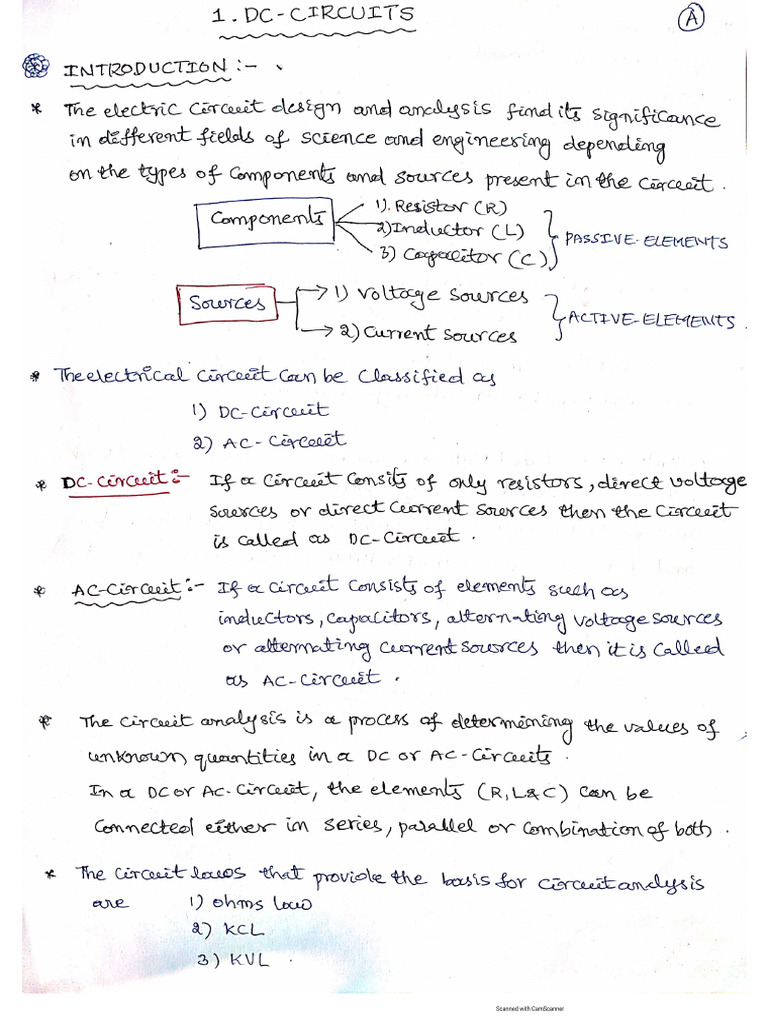 1. DC-CIRCUITS
A
INTRODUCTION :-
* The electric circuit design and analysis find its significance
in different fields of science and engineering depending
on the types of components and sources present in the circuit.
Components
1). Resistor (R)
2) Inductor (L)
3) Capacitor (C)
PASSIVE-ELEMENTS
Sources
1) Voltage sources
2) Current sources
ACTIVE-ELEMENTS.
* The electrical circuit can be classified as
1) DC-circuit
2) AC-circuit
* DC-circuit :- If a circuit consits of only resistors, direct voltage
sources or direct current sources then the circuit
is called as DC-circuit.
* AC-circuit :- If a circuit consists of elements such as
inductors, capacitors, alternating voltage sources
or alternating current sources then it is called
as AC-circuit.
* The circuit analysis is a process of determining the values of
unknown quantities in a DC or AC-circuits.
In a DC or AC-circuit, the elements (R, L & C) can be
connected either in series, parallel or combination of both.
* The circuit laws that provide the basis for circuit analysis
are 1) ohms law
2) KCL
3) KVL.
Scanned with CamScanner